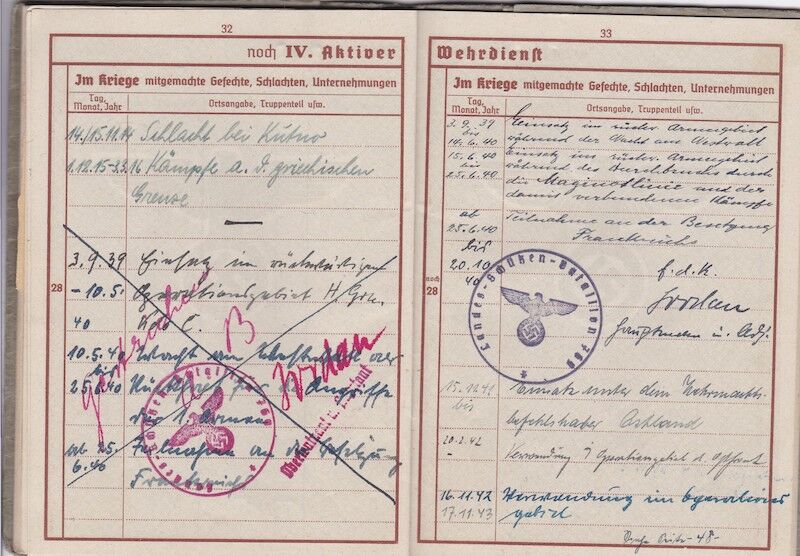 32
noch IV. Aktiver
Im Kriege mitgemachte Gefechte, Schlachten, Unternehmungen
Tag, Monat, Jahr
Ortsangabe, Truppenteil usw.
14./15.11.14 Schlacht bei Kutno
1.12.15-3.3.16 Kämpfe a. d. griechischen
Grenze
28
3.9.39 Einsatz im rückwärtigen
- 10.5. Operationsgebiet H.Gru.
40 C.
10.5.40 Wacht am
bis
25.6.40 für Angriffe
der 1. Armee
ab 25. Teilnahme an der Besetzung
6.40 Frankreichs
gestrichen
Jordan
Oberleutnant u. Adjutant
33
Wehrdienst
Im Kriege mitgemachte Gefechte, Schlachten, Unternehmungen
Tag, Monat, Jahr
Ortsangabe, Truppenteil usw.
3.9.39 Einsatz im rückw. Armeegebiet
bis
14.6.40 während der Wacht am Westwall
15.6.40 Einsatz im rückw. Armeegebiet
bis während des Durchbruchs durch
25.6.40 die Maginotlinie und der
damit verbundenen Kämpfe
ab Teilnahme an der Besetzung
25.6.40 Frankreichs
bis
20.10
40
f.d.R.
Jordan
Hauptmann u. Adj.
noch 28
Landes-Schützen-Bataillon
15.12.41 Einsatz unter dem Wehrmachts-
bis befehlshaber Ostland
20.2.42
- Verwendung i. Operationsgebiet d. Ostfront
16.11.42 Verwendung im Operations
17.11.43 gebiet
Siehe Seite -48-